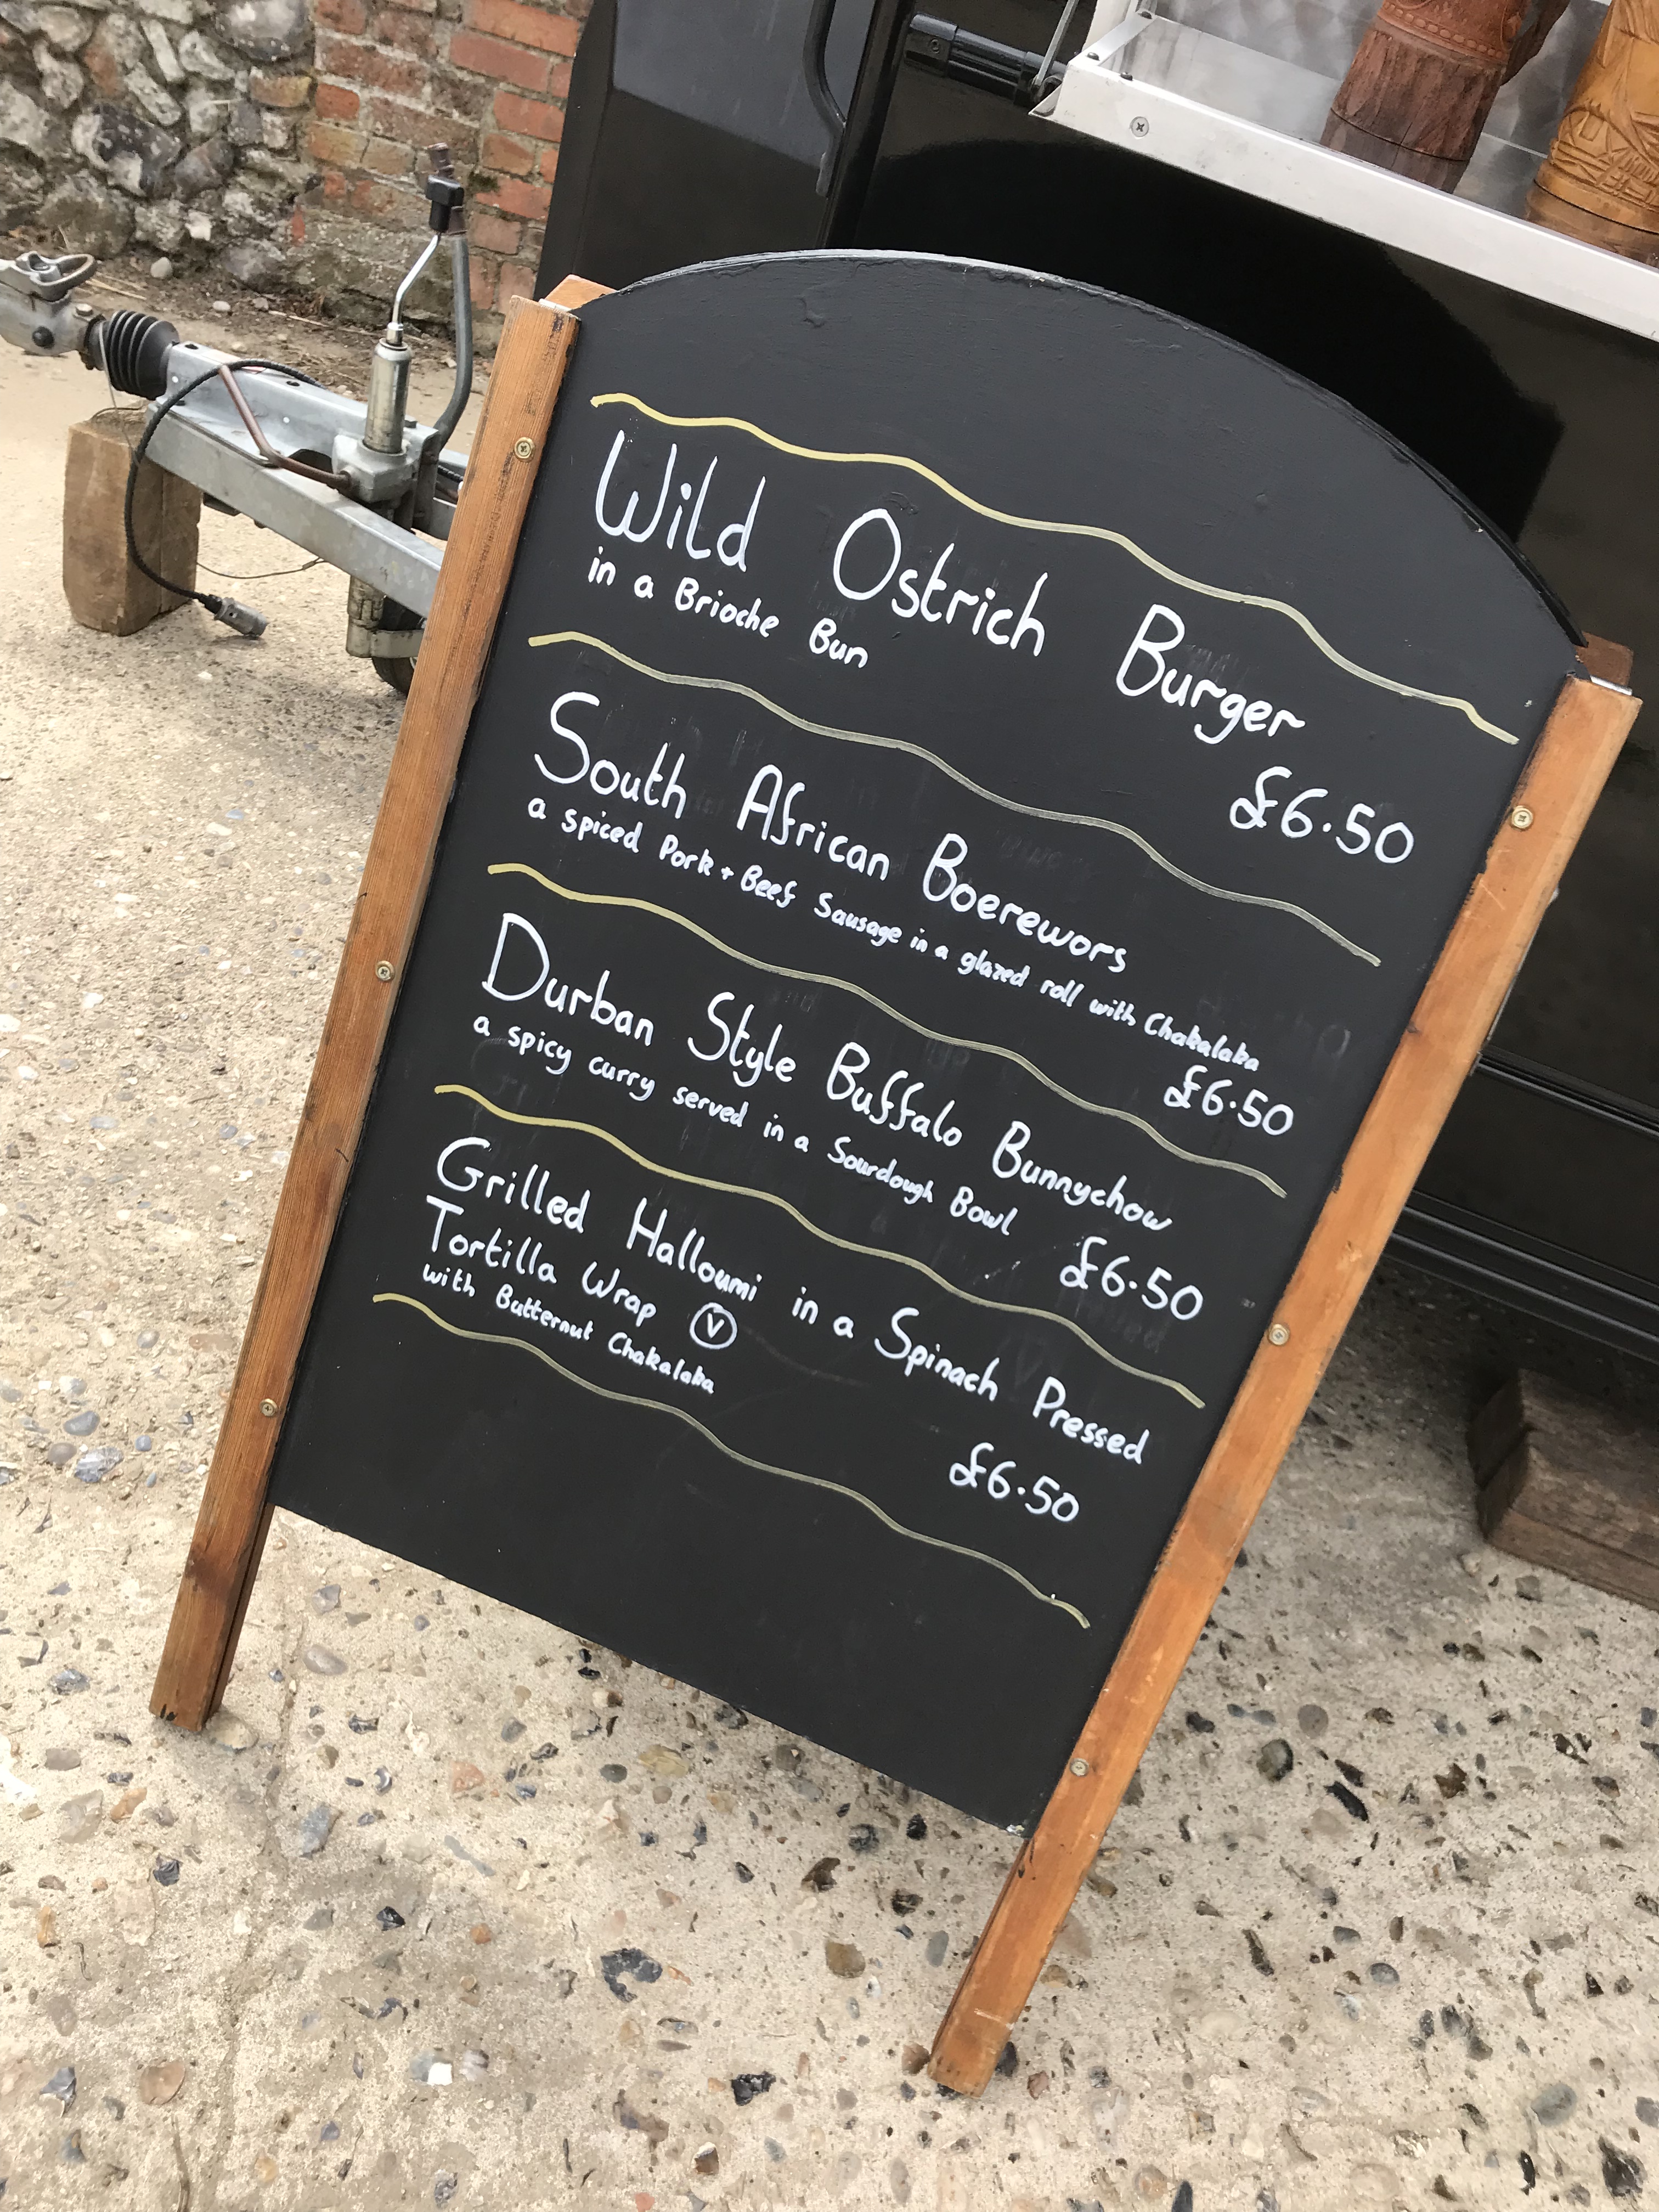 Wild Ostrich Burger
in a Brioche Bun
£6.50
South African Boerewors
a spiced Pork + Beef Sausage in a glazed roll with Chakalaka
£6.50
Durban Style Buffalo Bunnychow
a spicy curry served in a Sourdough Bowl
£6.50
Grilled Halloumi in a Spinach Pressed
Tortilla Wrap V
with Butternut Chakalaka
£6.50